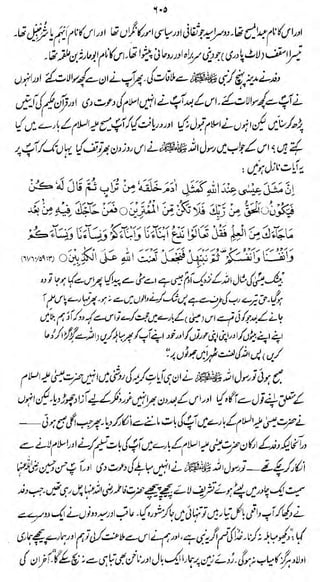 ۶۰۵
اور اس کا نام عبدالمسیح تھا۔ دوسرا سید جو ثقافتی اور سیاسی امور کا نگراں تھا اور اس کا نام اَیْہَم یا شُرَحْبِیل تھا۔
تیسرا اسقف (لاٹ پادری) جو دینی سربراہ اور روحانی پیشوا تھا۔ اس کا نام ابو حارثہ بن علقمہ تھا۔
وفد نے مدینہ پہنچ کر نبی ﷺ سے ملاقات کی۔ پھر آپ نے ان سے کچھ سوالات کئے اور انہوں
نے آپ سے کچھ سوالات کئے۔ اس کے بعد آپ نے انہیں اسلام کی دعوت دی اور قرآن حکیم کی آیتیں
پڑھ کر سنائیں لیکن انہوں نے اسلام قبول نہ کیا اور دریافت کیا کہ آپ مسیح علیہ السلام کے بارے میں کیا
کہتے ہیں؟ اس کے جواب میں رسول اللہ ﷺ نے اس روز دن بھر توقف کیا یہاں تک کہ آپ پر
یہ آیات نازل ہوئیں:
اِنَّ مَثَلَ عِيْسٰى عِنْدَ اللّٰهِ كَمَثَلِ اٰدَمَ خَلَقَهٗ مِنْ تُرَابٍ ثُمَّ قَالَ لَهٗ كُنْ
فَيَكُوْنُ○ اَلْحَقُّ مِنْ رَّبِّكَ فَلَا تَكُنْ مِّنَ الْمُمْتَرِيْنَ○ فَمَنْ حَآجَّكَ فِيْهِ مِنْ بَعْدِ
مَا جَآءَكَ مِنَ الْعِلْمِ فَقُلْ تَعَالَوْا نَدْعُ اَبْنَآءَنَا وَاَبْنَآءَكُمْ وَنِسَآءَنَا وَنِسَآءَكُمْ
وَاَنْفُسَنَا وَاَنْفُسَكُمْ ثُمَّ نَبْتَهِلْ فَنَجْعَلْ لَّعْنَتَ اللّٰهِ عَلَى الْكٰذِبِيْنَ○ (۳/۵۹-۶۱)
بیشک عیسیٰ کی مثال اللہ کے نزدیک آدم جیسی ہے اسے مٹی سے پیدا کیا پھر اس سے کہا ہو جا تو وہ
ہو گیا، حق تیرے رب کی طرف سے ہے پس شک کرنے والوں میں سے نہ ہو۔ پھر تمہارے پاس علم آ
جانے کے بعد جو کوئی تم سے اس (عیسیٰ) کے بارے میں حجت کرے تو اس سے کہہ دو کہ آؤ ہم بلائیں
اپنے اپنے بیٹوں کو اور اپنی اپنی عورتوں کو اور خود اپنے آپ کو پھر مباہلہ کریں (اللہ سے گڑگڑا کر دعا
کریں) پس اللہ کی لعنت ٹھہرائیں جھوٹوں پر"۔
صبح ہوئی تو رسول اللہ ﷺ نے ان ہی آیات کریمہ کی روشنی میں انہیں حضرت عیسیٰ علیہ السلام
کے متعلق اپنے قول سے آگاہ کیا اور اس کے بعد دن بھر انہیں غور و فکر کے لیے آزاد چھوڑ دیا۔ لیکن انہوں
نے حضرت عیسیٰ علیہ السلام کے بارے میں آپ کی بات ماننے سے انکار کر دیا۔ پھر جب اگلی صبح ہوئی ——
در آنحالیکہ وفد کے ارکان حضرت عیسیٰ علیہ السلام کے بارے میں آپ کی بات تسلیم کرنے اور اسلام لانے سے
انکار کر چکے تھے —— تو رسول اللہ ﷺ نے انہیں مباہلے کی دعوت دی اور آپ حسن حسین رضی اللہ عنہما
سمیت ایک چادر میں لپٹے ہوئے تشریف لائے پیچھے پیچھے حضرت فاطمہ رضی اللہ عنہا چل رہی تھیں۔ جب وفد
نے دیکھا کہ آپ واقعی بالکل تیار ہیں تو تنہائی میں جا کر مشورہ کیا۔ عاقب اور سید دونوں نے ایک دوسرے سے
کہا: "دیکھو مباہلہ نہ کرنا۔ خدا کی قسم اگر یہ نبی ہے، اور ہم نے اس سے ملاعنت کر لی تو ہم اور ہمارے پیچھے ہماری
اولاد ہرگز کامیاب نہ ہوگی۔ روئے زمین پر ہمارا ایک بال اور ناخن بھی تباہی سے نہ بچ سکے گا"۔ آخر ان کی